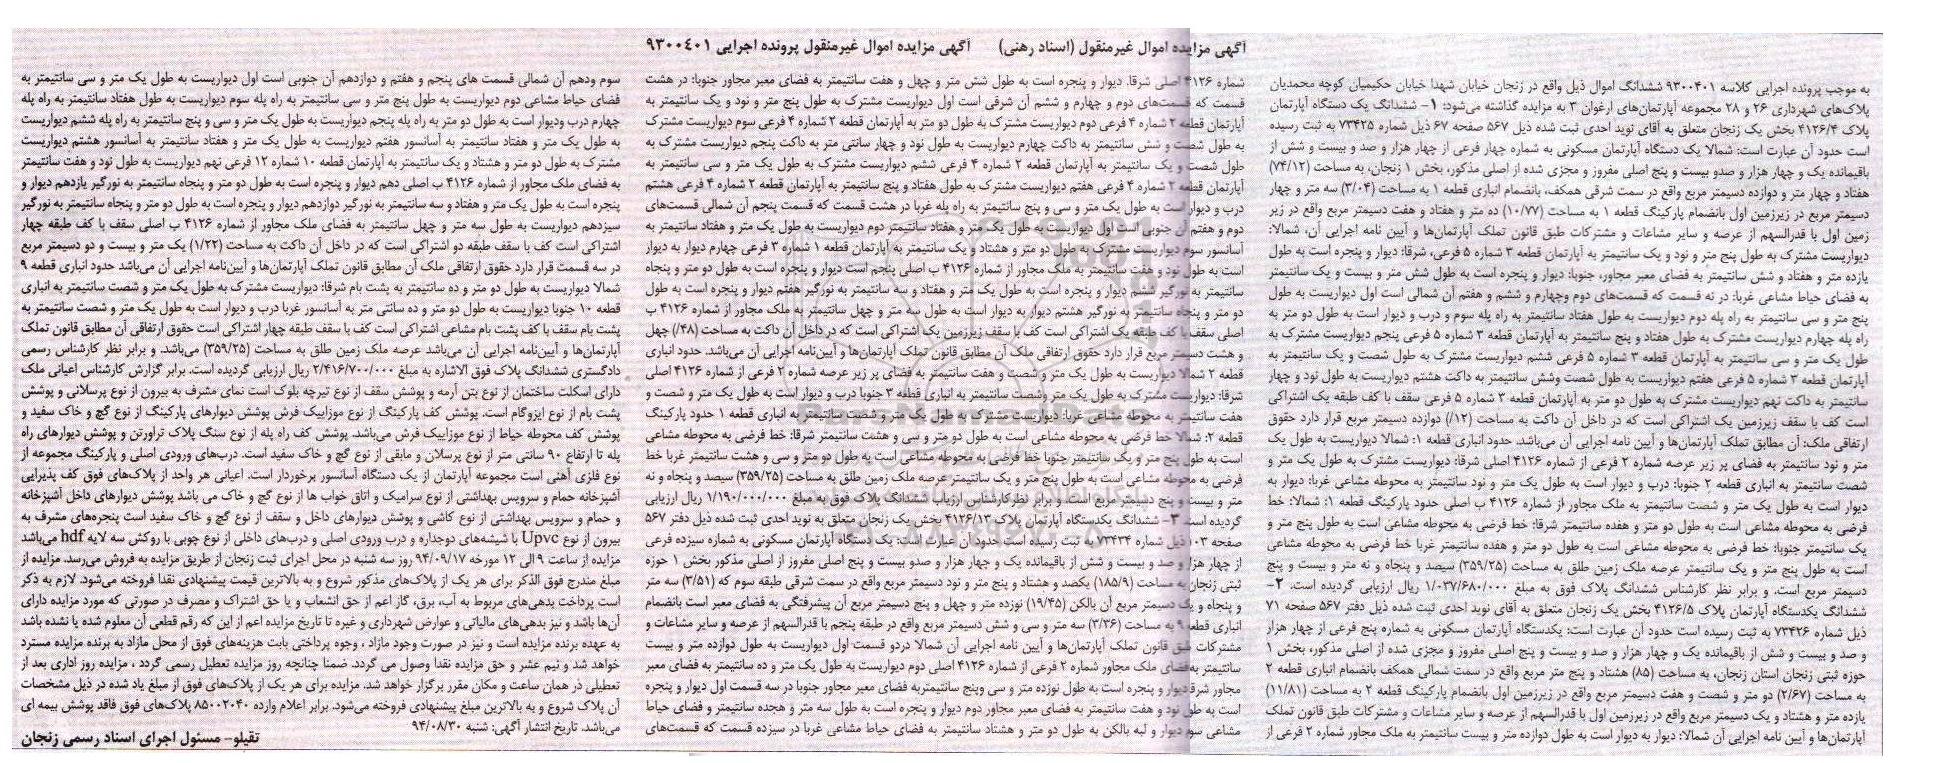 آگهی مزایده اموال غیرمنقول (اسناد رهنی) آگهی مزایده اموال غیرمنقول پرونده اجرایی ۹۳۰۰۴۰۱
به موجب پرونده اجرایی کلاسه ۹۳۰۰۴۰۱ ششدانگ اموال ذیل واقع در زنجان خیابان شهدا خیابان حکیمیان کوچه محمدیان
پلاک‌های شهرداری ۲۶ و ۲۸ مجموعه آپارتمان‌های ارغوان ۳ به مزایده گذاشته می‌شود: ۱- ششدانگ یک دستگاه آپارتمان
پلاک ۴۱۲۶/۴ بخش یک زنجان متعلق به آقای نوید احدی ثبت شده ذیل ۵۶۷ صفحه ۶۷ ذیل شماره ۷۳۴۲۵ به ثبت رسیده
است حدود آن عبارت است: شمالا یک دستگاه آپارتمان مسکونی به شماره چهار فرعی از چهار هزار و صد و بیست و شش از
باقیمانده یک و چهار هزار و صدو بیست و پنج اصلی مفروز و مجزی شده از اصلی مذکور، بخش ۱ زنجان، به مساحت (۷۴/۱۲)
هفتاد و چهار متر و دوازده دسیمتر مربع واقع در سمت شرقی همکف، بانضمام انباری قطعه ۱ به مساحت (۳/۰۴) سه متر و چهار
دسیمتر مربع در زیرزمین اول بانضمام پارکینگ قطعه ۱ به مساحت (۱۰/۷۷) ده متر و هفتاد و هفت دسیمتر مربع واقع در زیر
زمین اول با قدرالسهم از عرصه و سایر مشاعات و مشترکات طبق قانون تملک آپارتمان‌ها و آیین نامه اجرایی آن، شمالا:
دیواریست مشترک به طول پنج متر و نود و یک سانتیمتر به آپارتمان قطعه ۳ شماره ۵ فرعی، شرقا: دیوار و پنجره است به طول
یازده متر و هفتاد و شش سانتیمتر به فضای معبر مجاور، جنوبا: دیوار و پنجره است به طول شش متر و بیست و یک سانتیمتر
به فضای حیاط مشاعی غربا: در نه قسمت که قسمت‌های دوم وچهارم و ششم و هفتم آن شمالی است اول دیواریست به طول
پنج متر و سی سانتیمتر به راه پله دوم دیواریست به طول هفتاد سانتیمتر به راه پله سوم و درب و دیوار است به طول دو متر به
راه پله چهارم دیواریست مشترک به طول هفتاد و پنج سانتیمتر به آپارتمان قطعه ۳ شماره ۵ فرعی پنجم دیواریست مشترک به
طول یک متر و سی سانتیمتر به آپارتمان قطعه ۳ شماره ۵ فرعی ششم دیواریست مشترک به طول شصت و یک سانتیمتر به
آپارتمان قطعه ۳ شماره ۵ فرعی هفتم دیواریست به طول شصت وشش سانتیمتر به داکت هشتم دیواریست به طول نود و چهار
سانتیمتر به داکت نهم دیواریست مشترک به طول دو متر به آپارتمان قطعه ۳ شماره ۵ فرعی سقف با کف طبقه یک اشتراکی
است کف با سقف زیرزمین یک اشتراکی است که در داخل آن داکت به مساحت (۱۲/) دوازده دسیمتر مربع قرار دارد حقوق
ارتفاقی ملک: آن مطابق تملک آپارتمان‌ها و آیین نامه اجرایی آن می‌باشد. حدود انباری قطعه ۱: شمالا دیواریست به طول یک
متر و نود سانتیمتر به فضای پر زیر عرصه شماره ۲ فرعی از شماره ۴۱۲۶ اصلی شرقا: دیواریست مشترک به طول یک متر و
شصت سانتیمتر به انباری قطعه ۲ جنوبا: درب و دیوار است به طول یک متر و نود سانتیمتر به محوطه مشاعی غربا: دیوار به
دیوار است به طول یک متر و شصت سانتیمتر به ملک مجاور از شماره ۴۱۲۶ ب اصلی حدود پارکینگ قطعه ۱: شمالا: خط
فرضی به محوطه مشاعی است به طول دو متر و هفده سانتیمتر شرقا: خط فرضی به محوطه مشاعی است به طول پنج متر و
یک سانتیمتر جنوبا: خط فرضی به محوطه مشاعی است به طول دو متر و هفده سانتیمتر غربا خط فرضی به محوطه مشاعی
است به طول پنج متر و یک سانتیمتر عرصه ملک زمین طلق به مساحت (۳۵۹/۲۵) سیصد و پنجاه و نه متر و بیست و پنج
دسیمتر مربع است. و برابر نظر کارشناس ششدانگ پلاک فوق به مبلغ ۱/۰۳۷/۶۸۰/۰۰۰ ریال ارزیابی گردیده است. ۲-
ششدانگ یکدستگاه آپارتمان پلاک ۴۱۲۶/۵ بخش یک زنجان متعلق به آقای نوید احدی ثبت شده ذیل دفتر ۵۶۷ صفحه ۷۱
ذیل شماره ۷۳۴۲۶ به ثبت رسیده است حدود آن عبارت است: یکدستگاه آپارتمان مسکونی به شماره پنج فرعی از چهار هزار
و صد و بیست و شش از باقیمانده یک و چهار هزار و صد و بیست و پنج اصلی مفروز و مجزی شده از اصلی مذکور، بخش ۱
حوزه ثبتی زنجان استان زنجان، به مساحت (۸۵) هشتاد و پنج متر مربع واقع در سمت شمالی همکف بانضمام انباری قطعه ۲
به مساحت (۲/۶۷) دو متر و شصت و هفت دسیمتر مربع واقع در زیرزمین اول بانضمام پارکینگ قطعه ۲ به مساحت (۱۱/۸۱)
یازده متر و هشتاد و یک دسیمتر مربع واقع در زیرزمین اول با قدرالسهم از عرصه و سایر مشاعات و مشترکات طبق قانون تملک
آپارتمان‌ها و آیین نامه اجرایی آن شمالا: دیوار به دیوار است به طول دوازده متر و بیست سانتیمتر به ملک مجاور شماره ۲ فرعی از
شماره ۴۱۲۶ اصلی شرقا، دیوار و پنجره است به طول شش متر و چهل و هفت سانتیمتر به فضای معبر مجاور جنوبا: در هشت
قسمت که قسمت‌های دوم و چهارم و ششم آن شرقی است اول دیواریست مشترک به طول پنج متر و نود و یک سانتیمتر به
آپارتمان قطعه ۲ شماره ۴ فرعی دوم دیواریست مشترک به طول دو متر به آپارتمان قطعه ۲ شماره ۴ فرعی سوم دیواریست مشترک
به طول شصت و شش سانتیمتر به داکت چهارم دیواریست به طول نود و چهار سانتی متر به داکت پنجم دیواریست مشترک به
طول شصت و یک سانتیمتر به آپارتمان قطعه ۲ شماره ۴ فرعی ششم دیواریست مشترک به طول یک متر و سی سانتیمتر به
آپارتمان قطعه ۲ شماره ۴ فرعی هفتم دیواریست مشترک به طول هفتاد و پنج سانتیمتر به آپارتمان قطعه ۲ شماره ۴ فرعی هشتم
درب و دیوار است به طول یک متر و سی و پنج سانتیمتر به راه پله غربا در هشت قسمت که قسمت پنجم آن شمالی قسمت‌های
دوم و هفتم آن جنوبی است اول دیواریست به طول یک متر و هفتاد سانتیمتر دوم دیواریست به طول یک متر و هفتاد سانتیمتر به
آسانسور سوم دیواریست مشترک به طول دو متر و هشتاد و یک سانتیمتر به آپارتمان قطعه ۱ شماره ۳ فرعی چهارم دیوار به دیوار
است به طول نود و هفت سانتیمتر به ملک مجاور از شماره ۴۱۲۶ ب اصلی پنجم است دیوار و پنجره است به طول دو متر و پنجاه
سانتیمتر به نورگیر ششم دیوار و پنجره است به طول یک متر و هفتاد و سه سانتیمتر به نورگیر هفتم دیوار و پنجره است به طول
دو متر و پنجاه سانتیمتر به نورگیر هشتم دیوار به دیوار است به طول سه متر و چهل سانتیمتر به ملک مجاور از شماره ۴۱۲۶ ب
اصلی سقف با کف طبقه یک اشتراکی است کف با سقف زیرزمین یک اشتراکی است که در داخل آن داکت به مساحت (۴۸/) چهل
و هشت دسیمتر مربع قرار دارد حقوق ارتفاقی ملک آن مطابق قانون تملک آپارتمان‌ها و آیین‌نامه اجرایی آن می‌باشد. حدود انباری
قطعه ۲ شمالا دیواریست به طول یک متر و شصت و هفت سانتیمتر به فضای پر زیر عرصه شماره ۲ فرعی از شماره ۴۱۲۶ اصلی
شرقا: دیواریست مشترک به طول یک متر وشصت سانتیمتر به انباری قطعه ۳ جنوبا درب و دیوار است به طول یک متر و شصت و
هفت سانتیمتر به محوطه مشاعی غربا: دیواریست مشترک به طول یک متر و شصت سانتیمتر به انباری قطعه ۱ حدود پارکینگ
قطعه ۲: شمالا خط فرضی به محوطه مشاعی است به طول دو متر و سی و هشت سانتیمتر شرقا: خط فرضی به محوطه مشاعی
است به طول پنج متر و یک سانتیمتر جنوبا خط فرضی به محوطه مشاعی است به طول دو متر و سی و هشت سانتیمتر غربا خط
فرضی به محوطه مشاعی است به طول پنج متر و یک سانتیمتر عرصه ملک زمین طلق به مساحت (۳۵۹/۲۵) سیصد و پنجاه و نه
متر و بیست و پنج دسیمتر مربع است و برابر نظر کارشناس ارزیاب ششدانگ پلاک فوق به مبلغ ۱/۱۹۰/۰۰۰/۰۰۰ ریال ارزیابی
گردیده است ۳- ششدانگ یکدستگاه آپارتمان پلاک ۴۱۲۶/۱۳ بخش یک زنجان متعلق به نوید احدی ثبت شده ذیل دفتر ۵۶۷
صفحه ۱۰۳ ذیل شماره ۷۳۴۳۴ به ثبت رسیده است حدود آن عبارت است: یک دستگاه آپارتمان مسکونی به شماره سیزده فرعی
از چهار هزار و صد و بیست و شش از باقیمانده یک و چهار هزار و صدو بیست و پنج اصلی مفروز از اصلی مذکور بخش ۱ حوزه
ثبتی زنجان به مساحت (۱۸۵/۹) یکصد و هشتاد و پنج متر و نود دسیمتر مربع واقع در سمت شرقی طبقه سوم که (۳/۵۱) سه متر
و پنجاه و یک دسیمتر مربع آن بالکن (۱۹/۴۵) نوزده متر و چهل و پنج دسیمتر مربع آن پیشرفتگی به فضای معبر است بانضمام
انباری قطعه ۹ به مساحت (۳/۳۶) سه متر و سی و شش دسیمتر مربع واقع در طبقه پنجم با قدرالسهم از عرصه و سایر مشاعات و
مشترکات طبق قانون تملک آپارتمان‌ها و آیین نامه اجرایی آن شمالا دردو قسمت اول دیواریست به طول دوازده متر و بیست
سانتیمتر به فضای ملک مجاور شماره ۲ فرعی از شماره ۴۱۲۶ اصلی دوم دیواریست به طول یک متر و ده سانتیمتر به فضای معبر
مجاور شرقا دیوار و پنجره است به طول نوزده متر و سی وپنج سانتیمتربه فضای معبر مجاور جنوبا در سه قسمت اول دیوار و پنجره
است به طول نود و هفت سانتیمتر به فضای معبر مجاور دوم دیوار و پنجره است به طول سه متر و هجده سانتیمتر و فضای حیاط
مشاعی سوم دیوار و لبه بالکن به طول دو متر و هشتاد سانتیمتر به فضای حیاط مشاعی غربا در سیزده قسمت که قسمت‌های
سوم ودهم آن شمالی قسمت های پنجم و هفتم و دوازدهم آن جنوبی است اول دیواریست به طول یک متر و سی سانتیمتر به
فضای حیاط مشاعی دوم دیواریست به طول پنج متر و سی سانتیمتر به راه پله سوم دیواریست به طول هفتاد سانتیمتر به راه پله
چهارم درب ودیوار است به طول دو متر به راه پله پنجم دیواریست به طول یک متر و سی و پنج سانتیمتر به راه پله ششم دیواریست
به طول یک متر و هفتاد سانتیمتر به آسانسور هفتم دیواریست به طول یک متر و هفتاد سانتیمتر به آسانسور هشتم دیواریست
مشترک به طول دو متر و هشتاد و یک سانتیمتر به آپارتمان قطعه ۱۰ شماره ۱۲ فرعی نهم دیواریست به طول نود و هفت سانتیمتر
به فضای ملک مجاور از شماره ۴۱۲۶ ب اصلی دهم دیوار و پنجره است به طول دو متر و پنجاه سانتیمتر به نورگیر یازدهم دیوار و
پنجره است به طول یک متر و هفتاد و سه سانتیمتر به نورگیر دوازدهم دیوار و پنجره است به طول دو متر و پنجاه سانتیمتر به نورگیر
سیزدهم دیواریست به طول سه متر و چهل سانتیمتر به فضای ملک مجاور از شماره ۴۱۲۶ ب اصلی سقف با کف طبقه چهار
اشتراکی است کف با سقف طبقه دو اشتراکی است که در داخل آن داکت به مساحت (۱/۲۲) یک متر و بیست و دو دسیمتر مربع
در سه قسمت قرار دارد حقوق ارتفاقی ملک آن مطابق قانون تملک آپارتمان‌ها و آیین‌نامه اجرایی آن می‌باشد حدود انباری قطعه ۹
شمالا دیواریست به طول دو متر و ده سانتیمتر به پشت بام شرقا: دیواریست مشترک به طول یک متر و شصت سانتیمتر به انباری
قطعه ۱۰ جنوبا دیواریست به طول دو متر و ده سانتی متر یه آسانسور غربا درب و دیوار است به طول یک متر و شصت سانتیمتر به
پشت بام سقف با کف پشت بام مشاعی اشتراکی است کف با سقف طبقه چهار اشتراکی است حقوق ارتفاقی آن مطابق قانون تملک
آپارتمان‌ها و آیین‌نامه اجرایی آن می‌باشد عرصه ملک زمین طلق به مساحت (۳۵۹/۲۵) می‌باشد. و برابر نظر کارشناس رسمی
دادگستری ششدانگ پلاک فوق الاشاره به مبلغ ۲/۴۱۶/۷۰۰/۰۰۰ ریال ارزیابی گردیده است. برابر گزارش کارشناس اعیانی ملک
دارای اسکلت ساختمان از نوع بتن آرمه و پوشش سقف از نوع تیرچه بلوک است نمای مشرف به بیرون از نوع پرسلانی و پوشش
پشت بام از نوع ایزوگام است. پوشش کف پارکینگ از نوع موزاییک فرش پوشش دیوارهای پارکینگ از نوع گچ و خاک سفید و
پوشش کف محوطه حیاط از نوع موزاییک فرش می‌باشد. پوشش کف راه پله از نوع سنگ پلاک تراورتن و پوشش دیوارهای راه
پله تا ارتفاع ۹۰ سانتی متر از نوع پرسلان و مابقی از نوع گچ و خاک سفید است. درب‌های ورودی اصلی و پارکینگ مجموعه از
نوع فلزی آهنی است مجموعه آپارتمان از یک دستگاه آسانسور برخوردار است. اعیانی هر واحد از پلاک‌های فوق کف پذیرایی
آشپزخانه حمام و سرویس بهداشتی از نوع سرامیک و اتاق خواب ها از نوع گچ و خاک می باشد پوشش دیوارهای داخل آشپزخانه
و حمام و سرویس بهداشتی از نوع کاشی و پوشش دیوارهای داخل و سقف از نوع گچ و خاک سفید است پنجره‌های مشرف به
بیرون از نوع Upvc با شیشه‌های دوجداره و درب ورودی اصلی و درب‌های داخلی از نوع چوبی با روکش سه لایه hdf می‌باشد
مزایده از ساعت ۹ الی ۱۲ مورخه ۹۴/۰۹/۱۷ روز سه شنبه در محل اجرای ثبت زنجان از طریق مزایده به فروش می‌رسد. مزایده از
مبلغ مندرج فوق الذکر برای هر یک از پلاک‌های مذکور شروع و به بالاترین قیمت پیشنهادی نقدا فروخته می‌شود. لازم به ذکر
است پرداخت بدهی‌های مربوط به آب، برق، گاز اعم از حق انشعاب و یا حق اشتراک و مصرف در صورتی که مورد مزایده دارای
آن‌ها باشد و نیز بدهی‌های مالیاتی و عوارض شهرداری و غیره تا تاریخ مزایده اعم از این که رقم قطعی آن معلوم شده یا نشده باشد
به عهده برنده مزایده است و نیز در صورت وجود مازاد ، وجوه پرداختی بابت هزینه‌های فوق از محل مازاد به برنده مزایده مسترد
خواهد شد و نیم عشر و حق مزایده نقدا وصول می گردد. ضمنا چنانچه روز مزایده تعطیل رسمی گردد ، مزایده روز اداری بعد از
تعطیلی در همان ساعت و مکان مقرر برگزار خواهد شد. مزایده برای هر یک از پلاک‌های فوق از مبلغ یاد شده در ذیل مشخصات
آن پلاک شروع و به بالاترین مبلغ پیشنهادی فروخته می‌شود. برابر اعلام وارده ۸۵۰۰۲۰۴۰ پلاک‌های فوق فاقد پوشش بیمه ای
می‌باشد. تاریخ انتشار آگهی: شنبه ۹۴/۰۸/۳۰
تقیلو- مسئول اجرای اسناد رسمی زنجان